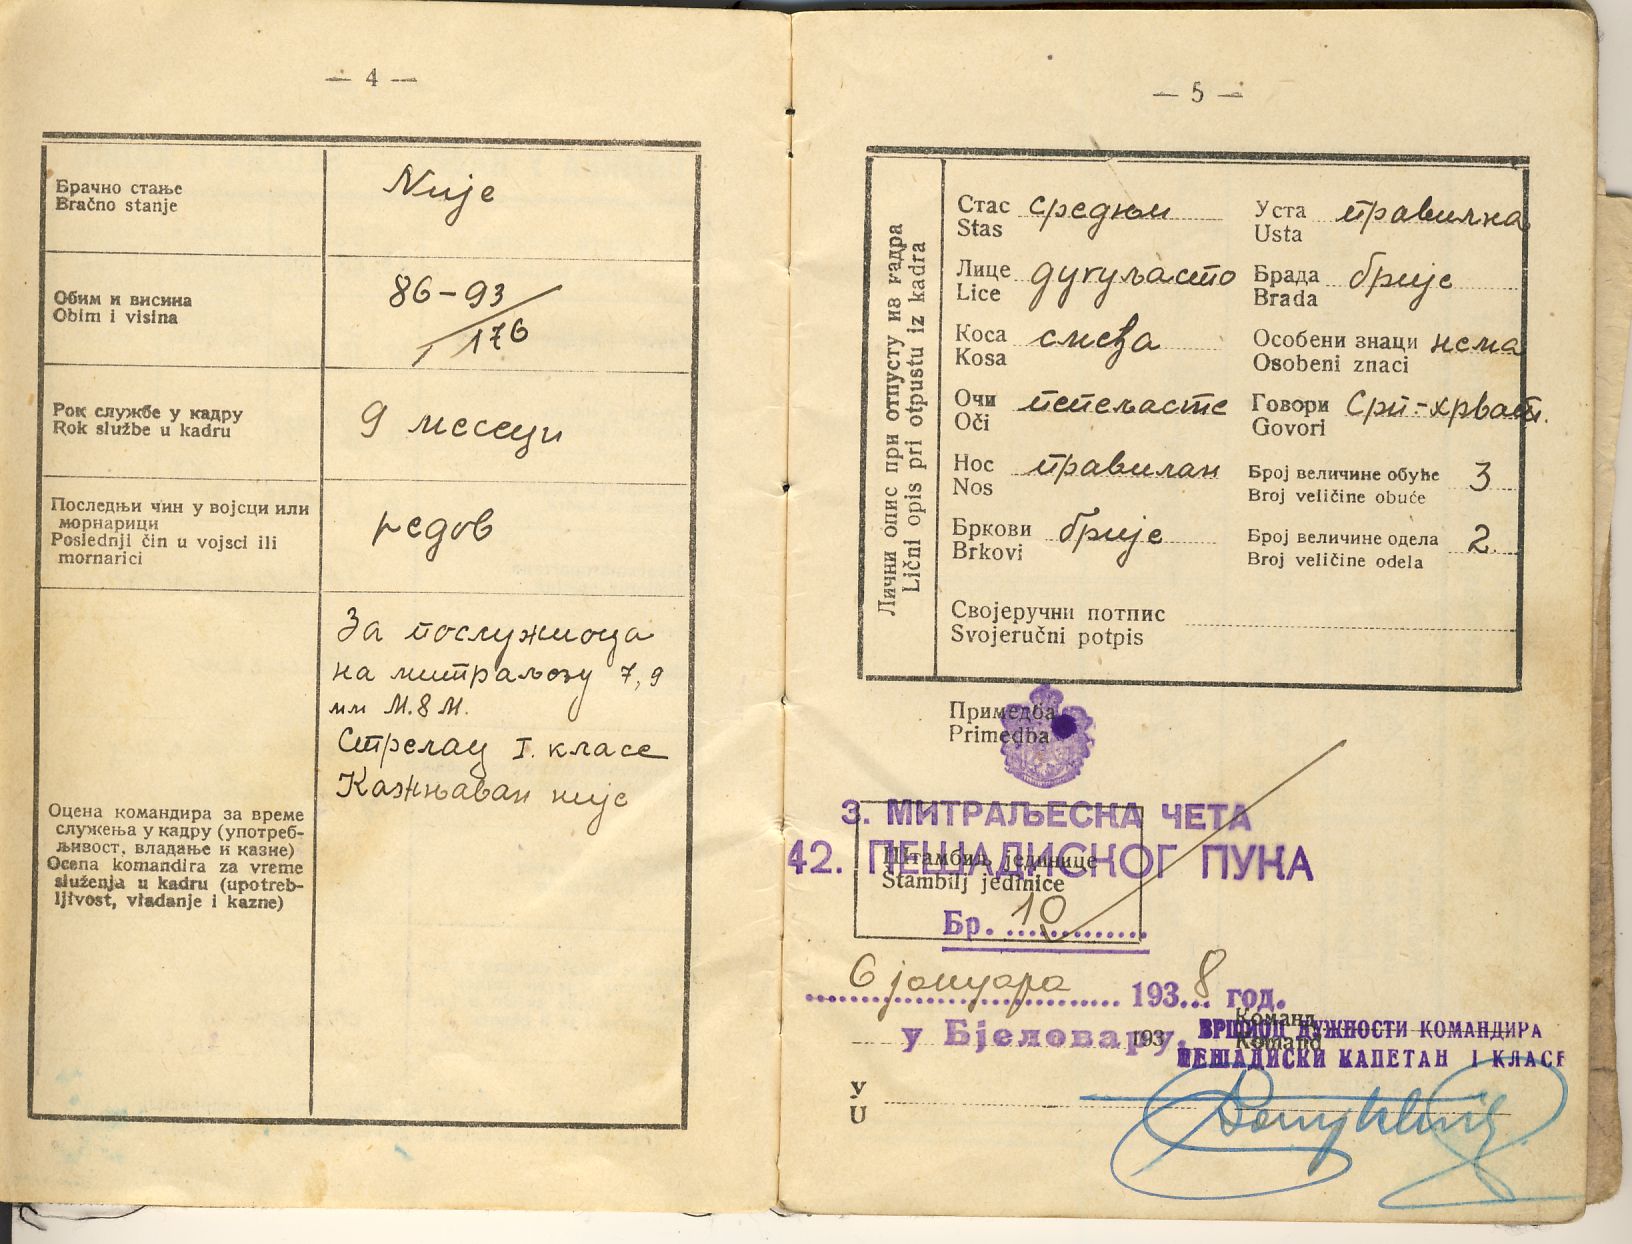 — 4 —
Брачно стање
Bračno stanje
Није
Обим и висина
Obim i visina
86-93
176
Рок службе у кадру
Rok službe u kadru
9 месеци
Последњи чин у војсци или
морнарици
Poslednji čin u vojsci ili
mornarici
редов
Оцена командира за време
служења у кадру (употреб-
љивост, владање и казне)
Ocena komandira za vreme
služenja u kadru (upotreb-
ljivost, vladanje i kazne)
За послужиоца
на митраљезу 7,9
мм М.8М.
Стрелац I. класе
Кажњаван није
— 5 —
Лични опис при отпусту из кадра
Lični opis pri otpustu iz kadra
Стас средњи Уста правилна
Stas Usta
Лице дугуљасто Брада брије
Lice Brada
Коса смеђа Особени знаци нема
Kosa Osobeni znaci
Очи пепељасте Говори Срп-хрват.
Oči Govori
Нос правилан Број величине обуће 3
Nos Broj veličine obuće
Бркови брије Број величине одела 2
Brkovi Broj veličine odela
Својеручни потпис
Svojeručni potpis
Примедба
Primedba
3. МИТРАЉЕСКА ЧЕТА
42. ПЕШАДИСКОГ ПУКА
Штамбиљ јединице
Štambilj jedinice
Бр. 10
6 јануара 1938 год.
у Бјеловару,
193
Команд
Komand
ВРШИОЦ ДУЖНОСТИ КОМАНДИРА
ПЕШАДИСКИ КАПЕТАН I КЛАСЕ
У
U